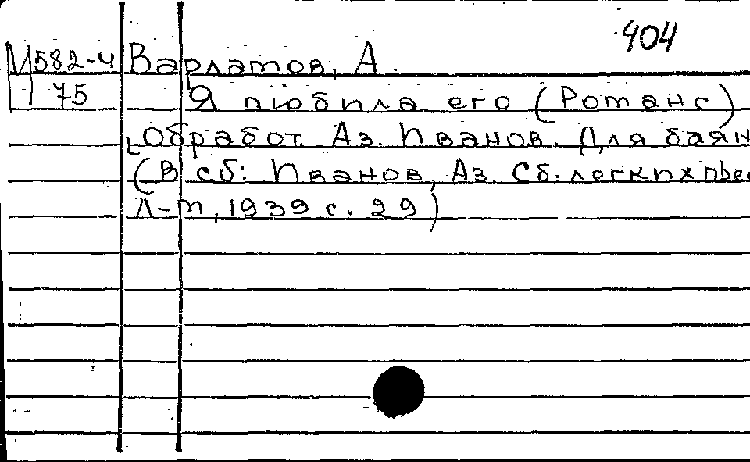 404
М582-4 Варламов, А.
75 Я любила его (Романс)
[Обработ. Аз. Иванов. Для баян
(В сб: Иванов, Аз. Сб. легких пьес
Л-т, 1939 с. 29)